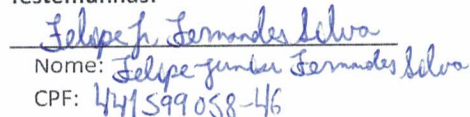 Testemunhas:
Felipe Jr Fernandes Silva
Nome: Felipe Junior Fernandes Silva
CPF: 441599058-46